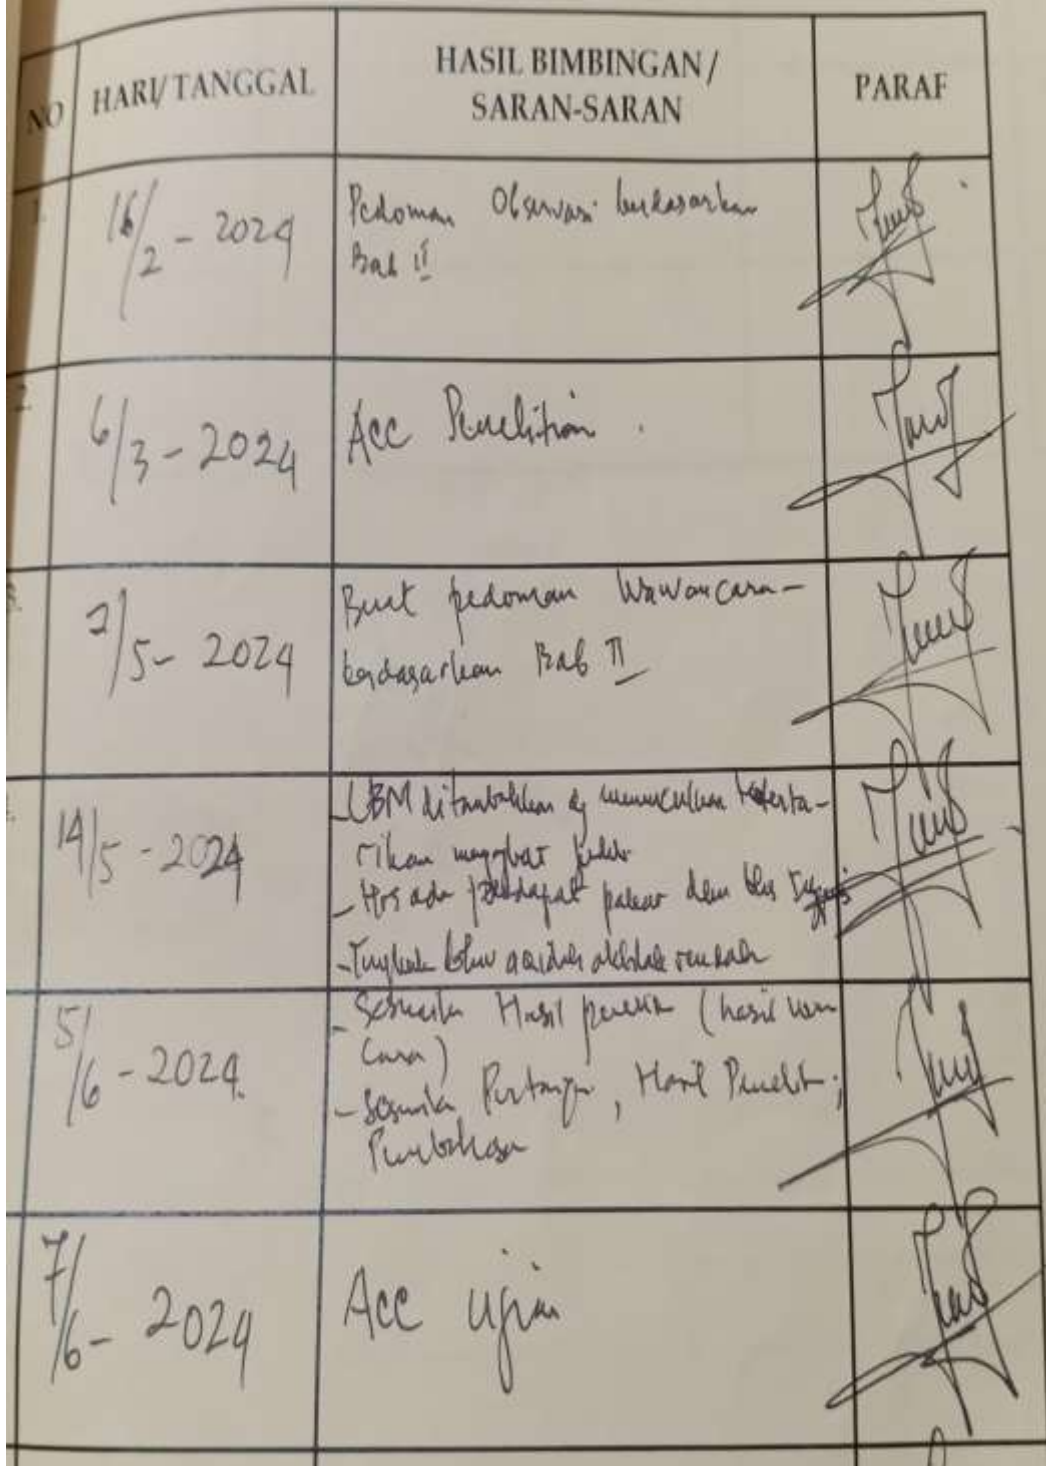 NO HARI/TANGGAL HASIL BIMBINGAN/ PARAF
SARAN-SARAN
1. 16/2 - 2024 Pedoman Observasi berdasarkan
Bab II
2. 6/3 - 2024 Acc Penelitian.
3. 7/5 - 2024 Buat pedoman Wawancara -
berdasarkan Bab II
14/5 - 2024 - LBM ditambahkan dg memunculkan keterta-
rikan
- Hrs ada pendapat pakar dan
- akhlak rendah
5/6 - 2024. - Hasil (hasil wawan
cara)
- Hasil Penelit;
Pembahasan
7/6 - 2024 Acc Ujian